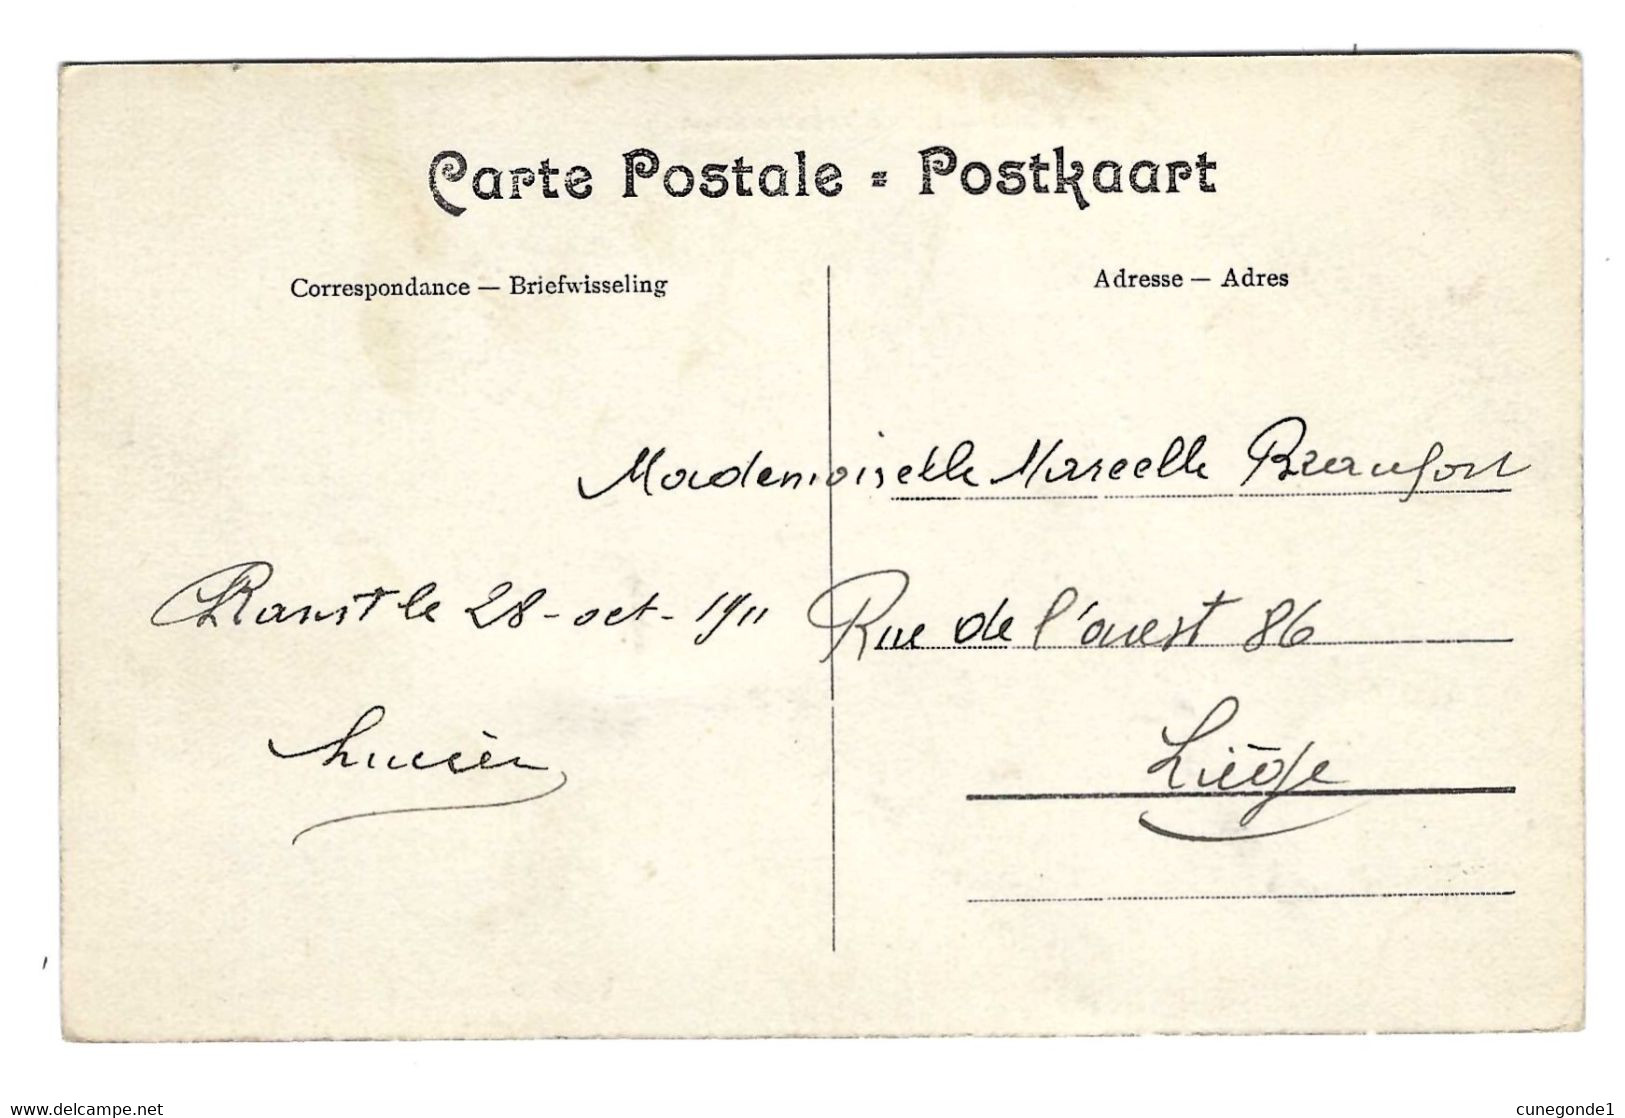 Carte Postale = Postkaart
Correspondance — Briefwisseling
Adresse — Adres
Mademoiselle Marcelle Beaufort
Ranst le 28-oct-1911
Rue de l'ouest 86
Lucien
Liège
www.delcampe.net
cunegonde1